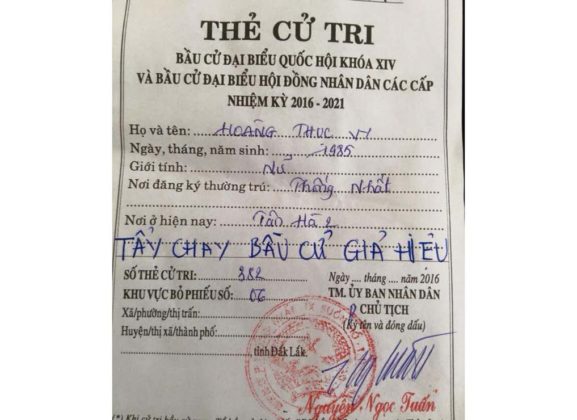 THẺ CỬ TRI
BẦU CỬ ĐẠI BIỂU QUỐC HỘI KHÓA XIV
VÀ BẦU CỬ ĐẠI BIỂU HỘI ĐỒNG NHÂN DÂN CÁC CẤP
NHIỆM KỲ 2016 - 2021
Họ và tên: HOÀNG THỤC VY
Ngày, tháng, năm sinh: 1985
Giới tính: Nữ
Nơi đăng ký thường trú: Thống Nhất
Nơi ở hiện nay: Tân Hà 2
TẨY CHAY BẦU CỬ GIẢ HIỆU
SỐ THẺ CỬ TRI: 382
KHU VỰC BỎ PHIẾU SỐ: 06
Xã/phường/thị trấn:
Huyện/thị xã/thành phố:
tỉnh Đắk Lắk.
Ngày .... tháng .... năm 2016
TM. ỦY BAN NHÂN DÂN
CHỦ TỊCH
(Ký tên và đóng dấu)
Nguyễn Ngọc Tuấn